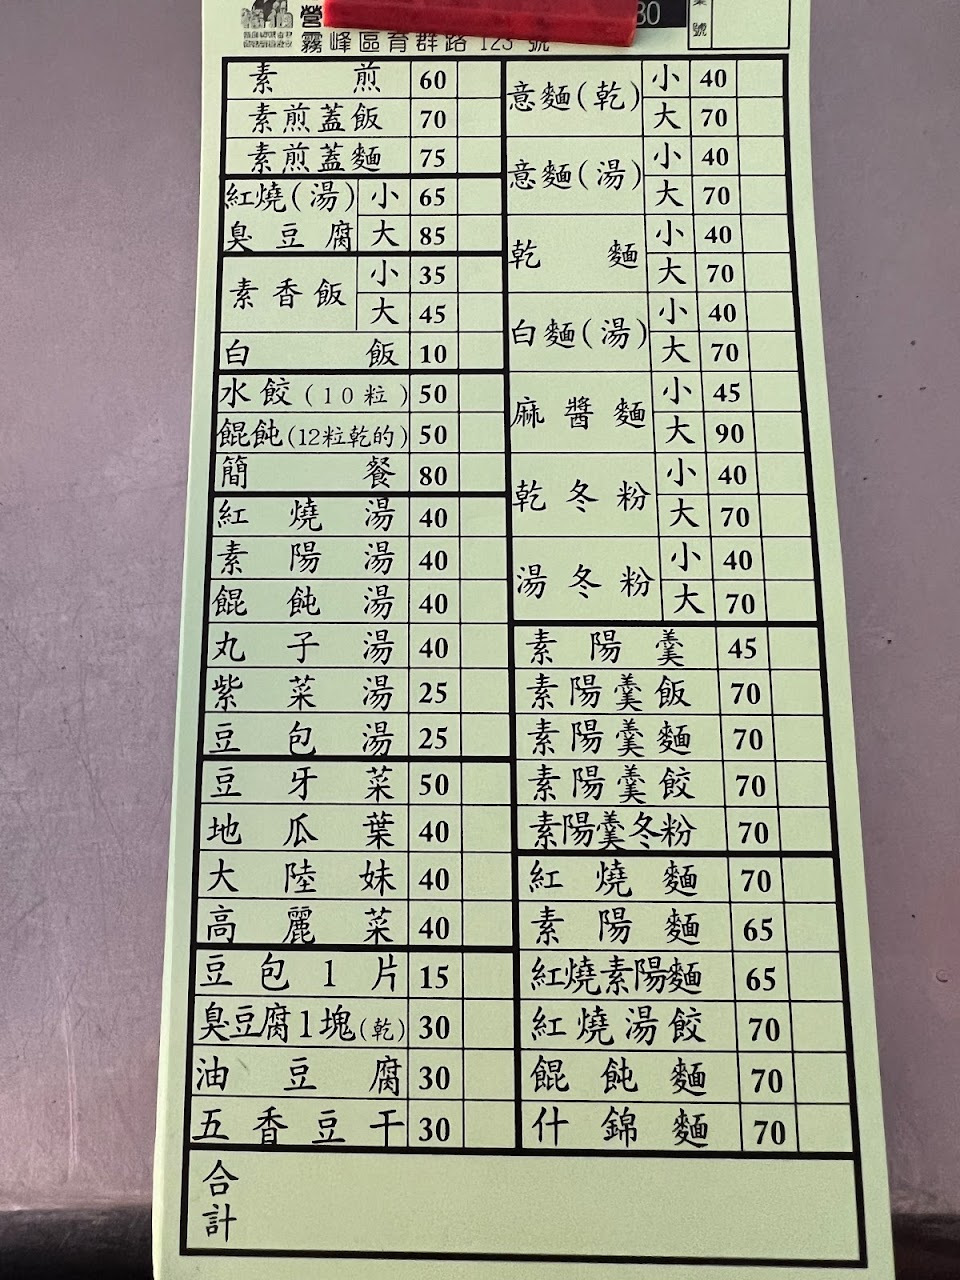 營
80
業
號
霧峰區育群路 123 號
素煎 60
素煎蓋飯 70
素煎蓋麵 75
紅燒(湯) 小 65
臭豆腐 大 85
素香飯 小 35
大 45
白飯 10
水餃(10粒) 50
餛飩(12粒乾的) 50
簡餐 80
紅燒湯 40
素陽湯 40
餛飩湯 40
丸子湯 40
紫菜湯 25
豆包湯 25
豆牙菜 50
地瓜葉 40
大陸妹 40
高麗菜 40
豆包1片 15
臭豆腐1塊(乾) 30
油豆腐 30
五香豆干 30
意麵(乾) 小 40
大 70
意麵(湯) 小 40
大 70
乾麵 小 40
大 70
白麵(湯) 小 40
大 70
麻醬麵 小 45
大 90
乾冬粉 小 40
大 70
湯冬粉 小 40
大 70
素陽羹 45
素陽羹飯 70
素陽羹麵 70
素陽羹餃 70
素陽羹冬粉 70
紅燒麵 70
素陽麵 65
紅燒素陽麵 65
紅燒湯餃 70
餛飩麵 70
什錦麵 70
合計